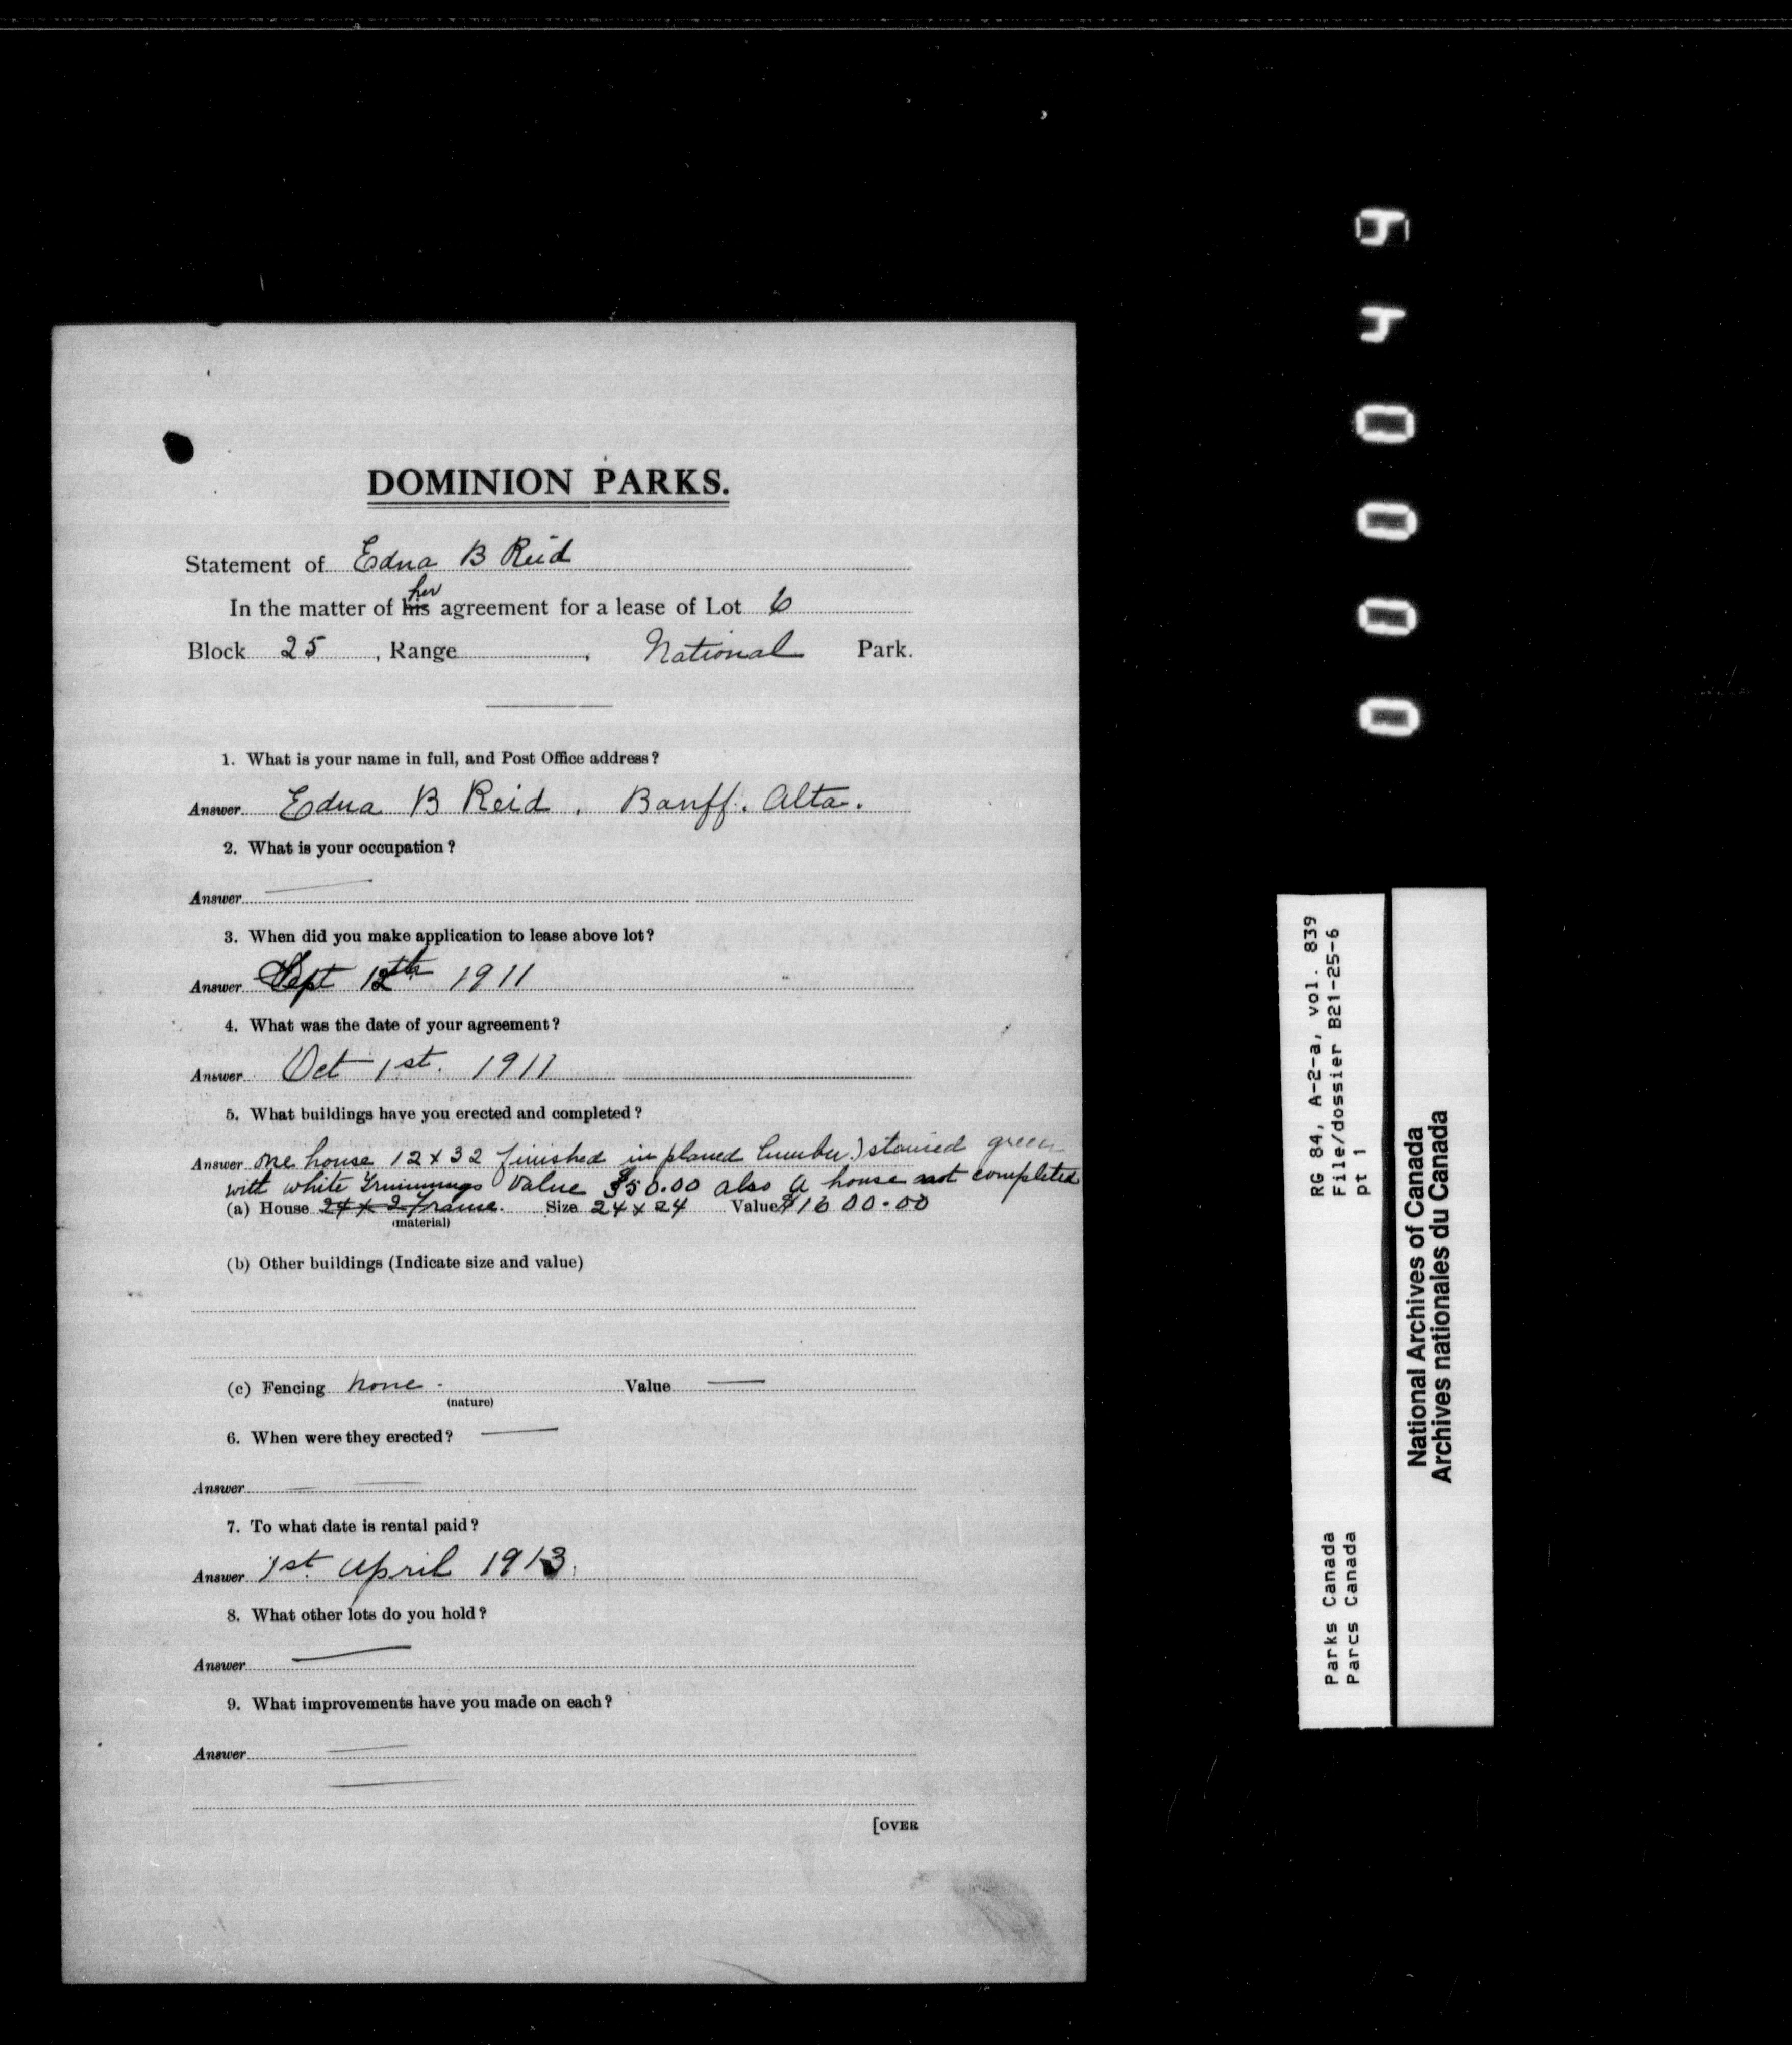 DOMINION PARKS.
Statement of Edna B Reid
her
In the matter of his agreement for a lease of Lot 6
Block 25, Range , National Park.
1. What is your name in full, and Post Office address?
Answer Edna B Reid, Banff. Alta.
2. What is your occupation?
Answer
3. When did you make application to lease above lot?
Answer Sept 12th 1911
4. What was the date of your agreement?
Answer Oct 1st. 1911
5. What buildings have you erected and completed?
Answer one house 12 x 32 finished in planed lumber) stained green
with white trimmings Value $50.00 also a house not completed
(a) House 24 x 2 frame. Size 24 x 24 Value $1600.00
(material)
(b) Other buildings (Indicate size and value)
(c) Fencing none. Value
(nature)
6. When were they erected?
Answer
7. To what date is rental paid?
Answer 1st. April 1913.
8. What other lots do you hold?
Answer
9. What improvements have you made on each?
Answer
[OVER
RG 84, A-2-a, vol. 839
File/dossier B21-25-6
pt 1
Parks Canada
Parcs Canada
National Archives of Canada
Archives nationales du Canada